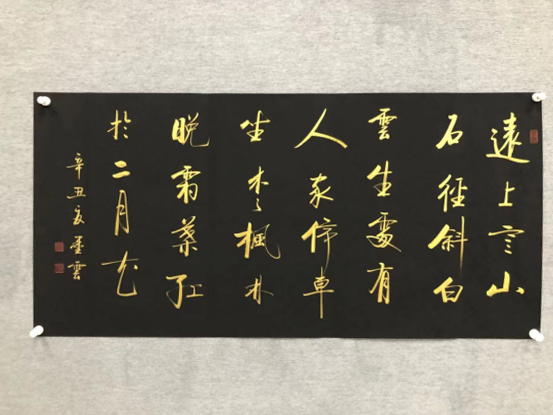 遠上寒山
石徑斜白
雲生處有
人家停車
坐愛楓林
晚霜葉紅
於二月花
辛丑夏雲